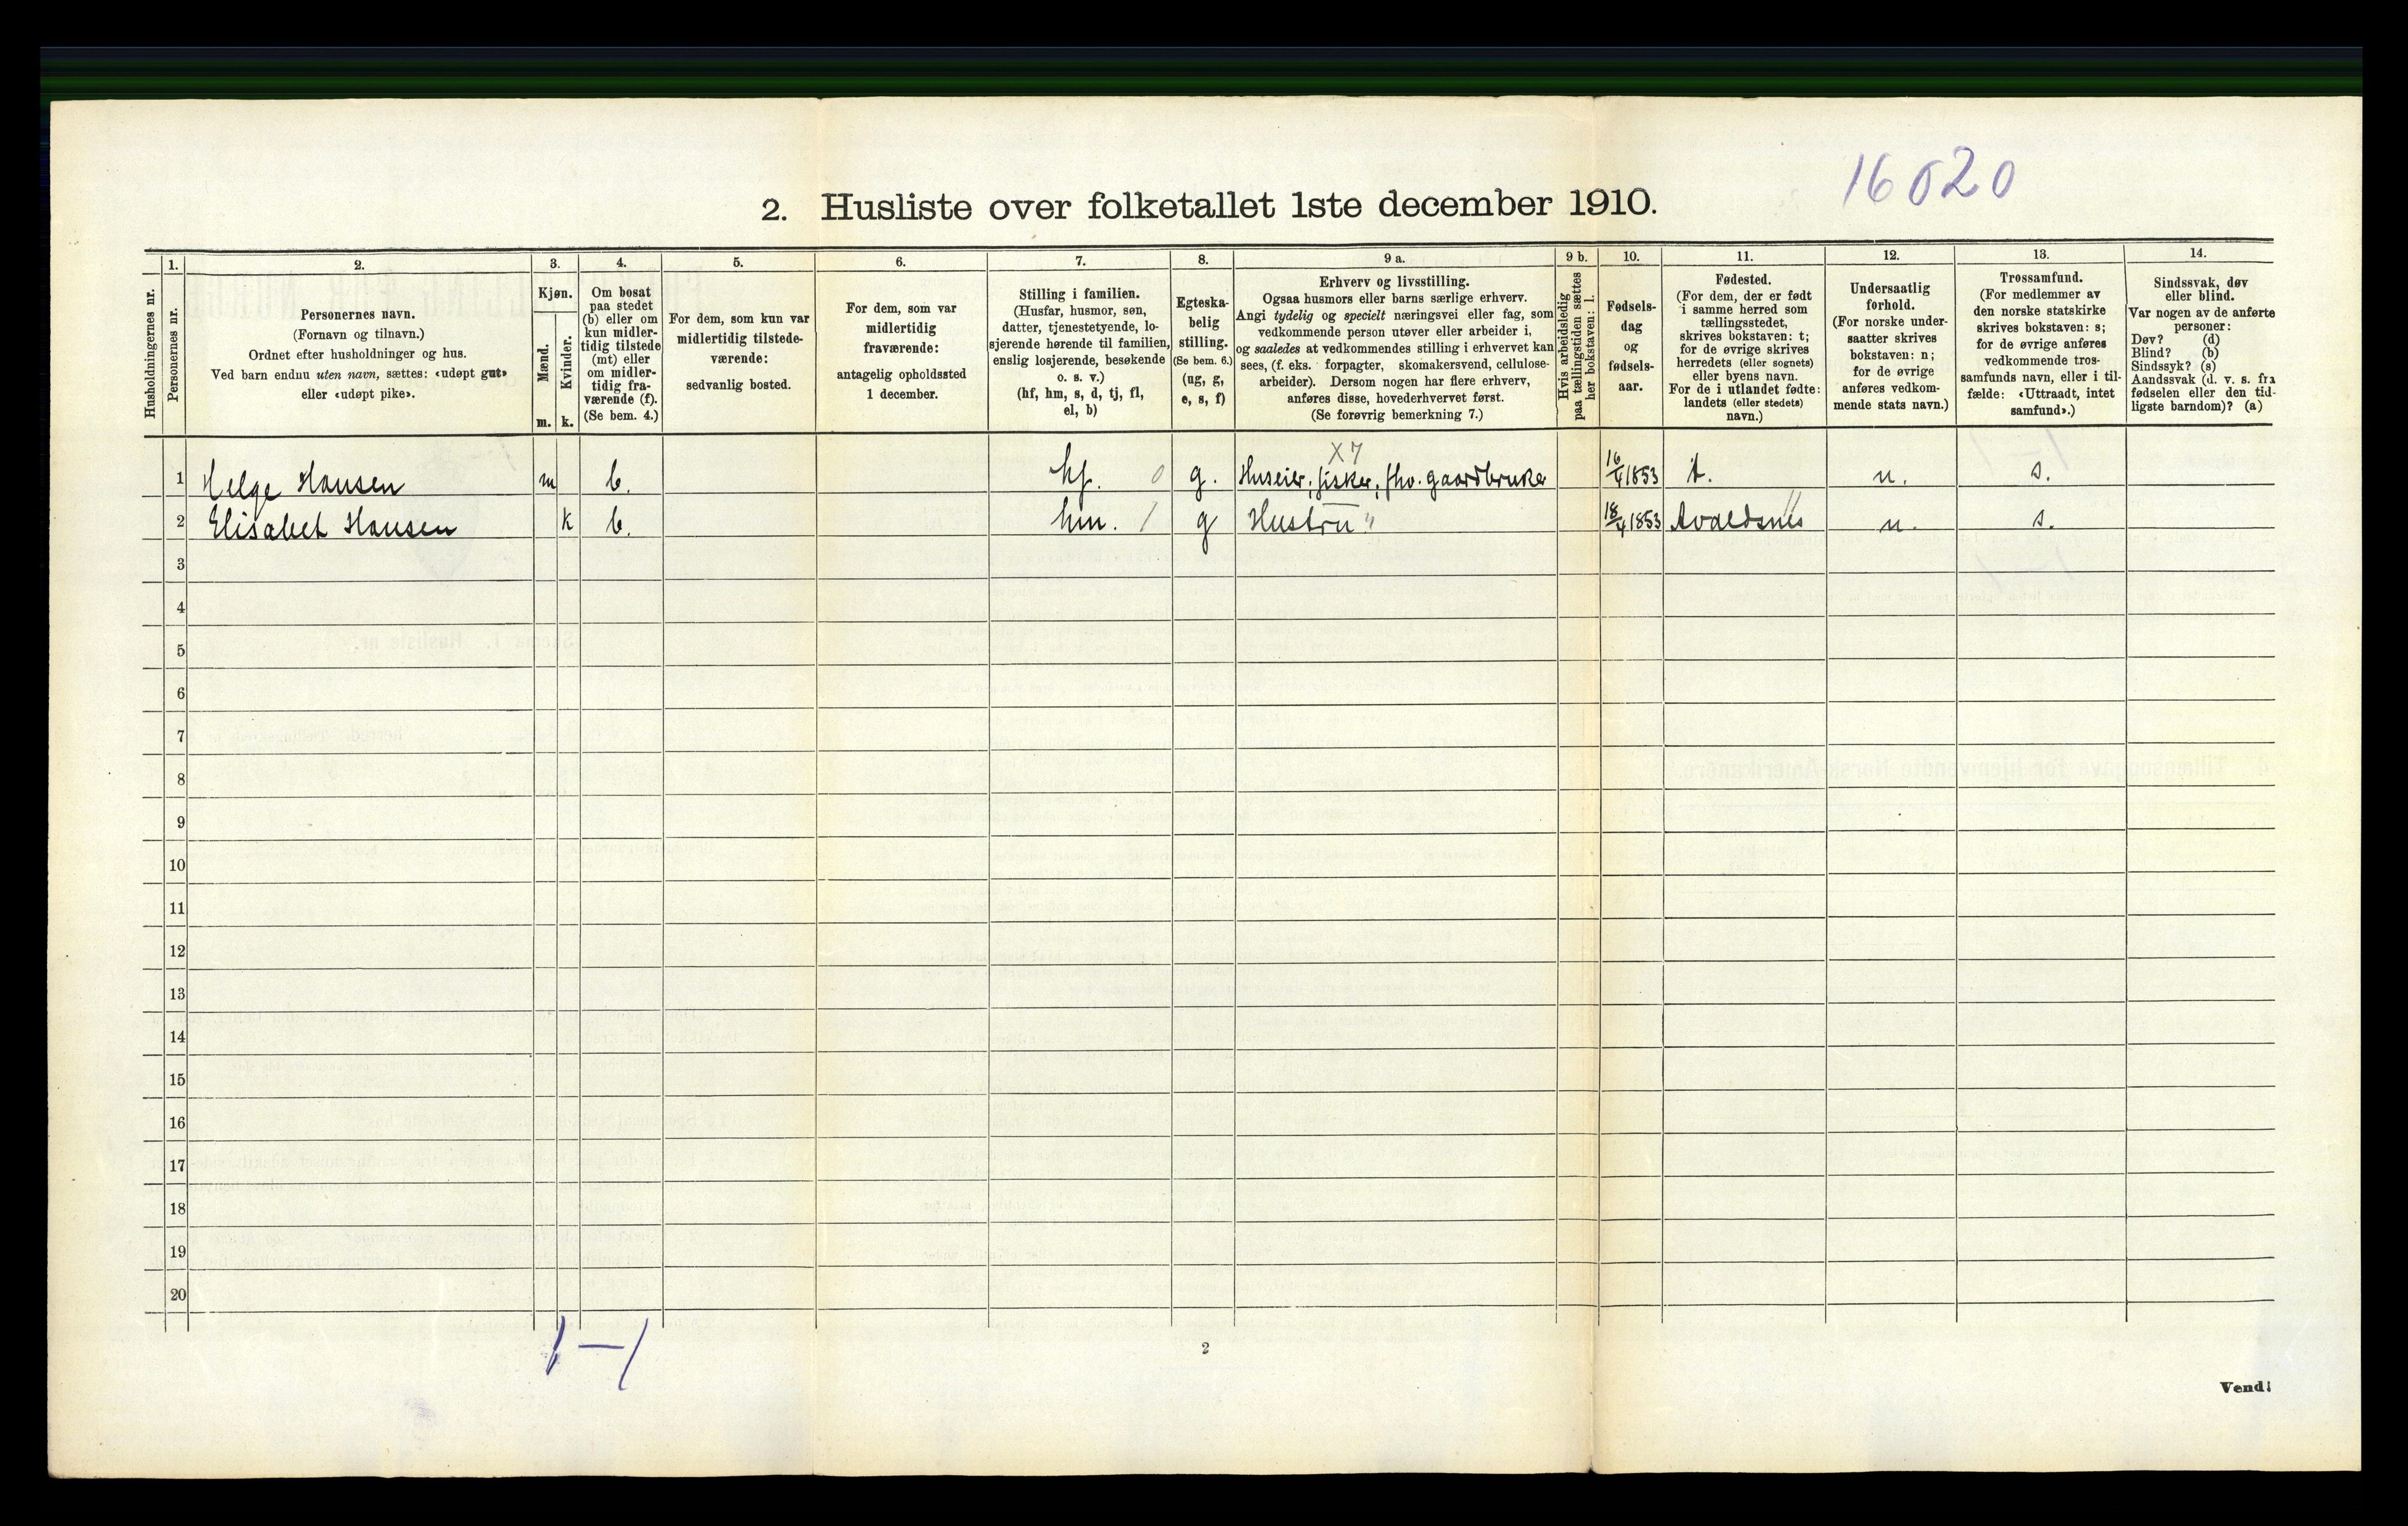 16020
2. Husliste over folketallet 1ste december 1910.
Husholdningernes nr.
1.
Personernes nr.
2.
Personernes navn.
(Fornavn og tilnavn.)
Ordnet efter husholdninger og hus.
Ved barn endnu uten navn, sættes: «udøpt gut»
eller «udøpt pike».
3.
Kjøn.
Mænd.
Kvinder.
m. k.
4.
Om bosat
paa stedet
(b) eller om
kun midler-
tidig tilstede
(mt) eller
om midler-
tidig fra-
værende (f).
(Se bem. 4.)
5.
For dem, som kun var
midlertidig tilstede-
værende:
sedvanlig bosted.
6.
For dem, som var
midlertidig
fraværende:
antagelig opholdssted
1 december.
7.
Stilling i familien.
(Husfar, husmor, søn,
datter, tjenestetyende, lo-
sjerende hørende til familien,
enslig losjerende, besøkende
o. s. v.)
(hf, hm, s, d, tj, fl,
el, b)
8.
Egteska-
belig
stilling.
(Se bem. 6.)
(ug, g,
e, s, f)
9 a.
Erhverv og livsstilling.
Ogsaa husmors eller barns særlige erhverv.
Angi tydelig og specielt næringsvei eller fag, som
vedkommende person utøver eller arbeider i,
og saaledes at vedkommendes stilling i erhvervet kan
sees, (f. eks. forpagter, skomakersvend, cellulose-
arbeider). Dersom nogen har flere erhverv,
anføres disse, hovederhvervet først.
(Se forøvrig bemerkning 7.)
9 b.
Hvis arbeidsledig
paa tællingstiden sættes
her bokstaven: l.
10.
Fødsels-
dag
og
fødsels-
aar.
11.
Fødested.
(For dem, der er født
i samme herred som
tællingsstedet,
skrives bokstaven: t;
for de øvrige skrives
herredets (eller sognets)
eller byens navn.
For de i utlandet fødte:
landets (eller stedets)
navn.)
12.
Undersaatlig
forhold.
(For norske under-
saatter skrives
bokstaven: n;
for de øvrige
anføres vedkom-
mende stats navn.)
13.
Trossamfund.
(For medlemmer av
den norske statskirke
skrives bokstaven: s;
for de øvrige anføres
vedkommende tros-
samfunds navn, eller i til-
fælde: «Uttraadt, intet
samfund».)
14.
Sindssvak, døv
eller blind.
Var nogen av de anførte
personer:
Døv? (d)
Blind? (b)
Sindssyk? (s)
Aandssvak (d. v. s. fra
fødselen eller den tid-
ligste barndom)? (a)
X7
1 Helge Hansen m b. hf. 0 g. Huseier, fisker, fhv. gaardbruker 16/4 1853 t. n. s.
2 Elisabet Hansen k b. hm. 1 g Hustru " 18/4 1853 Avaldsnes n. s.
3
4
5
6
7
8
9
10
11
12
13
14
15
16
17
18
19
20
1-1
2
Vend!